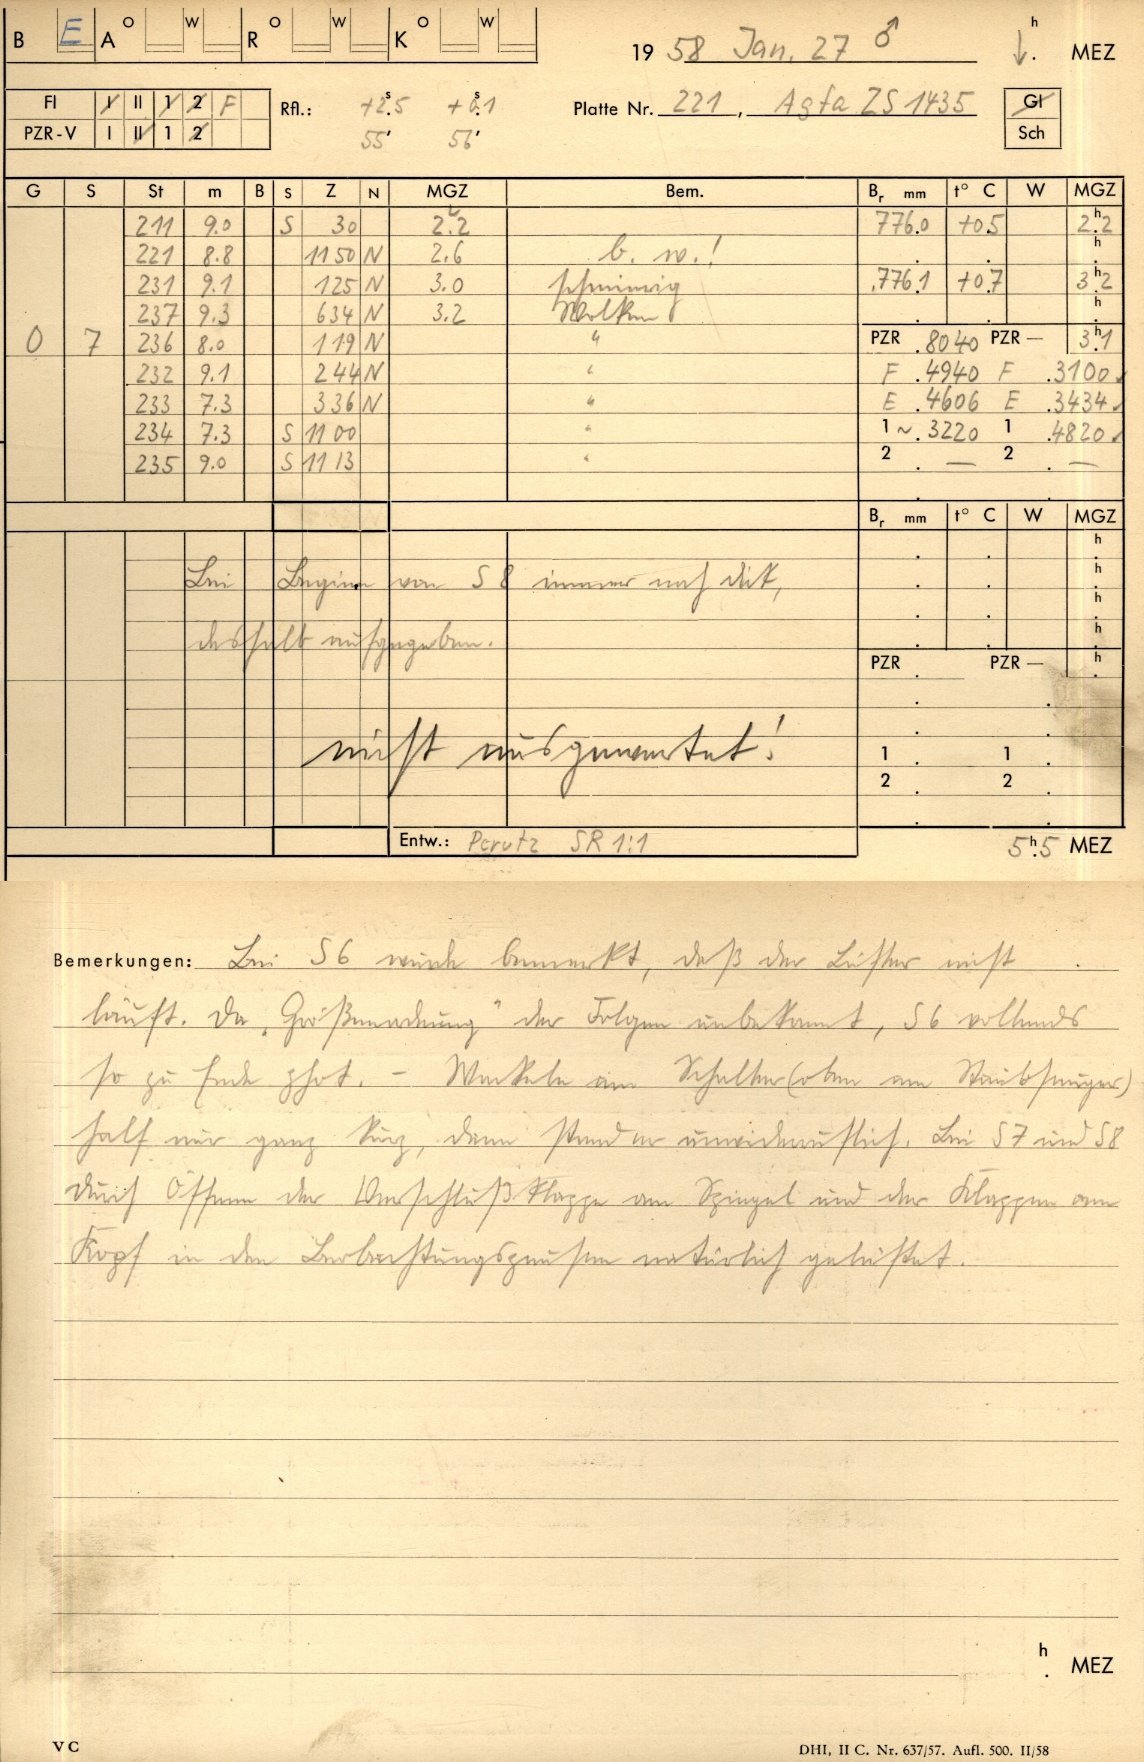 B E A O W R O W K O W
19 58 Jan. 27 ♂ h MEZ
FI I II 1 2 F Rfl.: +2.5 s +0.1 s Platte Nr. 221, Agfa ZS 1435 Gl
PZR-V I II 1 2 55' 56' Sch
G S St m B S Z N MGZ Bem. Br mm t° C W MGZ
211 9.0 S 30 2.2 776.0 +0.5 2.2
221 8.8 1150 N 2.6 b. w.!
231 9.1 125 N 3.0 schmierig 776.1 +0.7 3.2
237 9.3 634 N 3.2 Wolken
0 7 236 8.0 119 N " PZR .8040 PZR — 3.1
232 9.1 244 N " F .4940 F .3100
233 7.3 336 N " E .4606 E .3434
234 7.3 S 1100 " 1 ~ .3220 1 .4820
235 9.0 S 1113 " 2 . — 2 . —
Br mm t° C W MGZ
Bei Beginn von S 8 immer noch dick,
deshalb aufgegeben.
PZR . PZR —
nicht ausgewertet!
1 . 1 .
2 . 2 .
Entw.: Perutz SR 1:1 5.5 h MEZ
Bemerkungen: Bei S 6 wurde bemerkt, daß der Lüfter nicht
läuft. Da „Größenordnung" der Folgen unbekannt, S 6 vollends
so zu Ende phot. – Wackeln am Schalter (oben am Staubsauger)
half nur ganz kurz, dann stand er unwiderruflich. Bei S 7 und S 8
durch Öffnen der Verschlußklappe am Spiegel und der Klappen am
Kopf in den Beobachtungspausen natürlich gelüftet.
h . MEZ
VC DHI, II C. Nr. 637/57. Aufl. 500. II/58